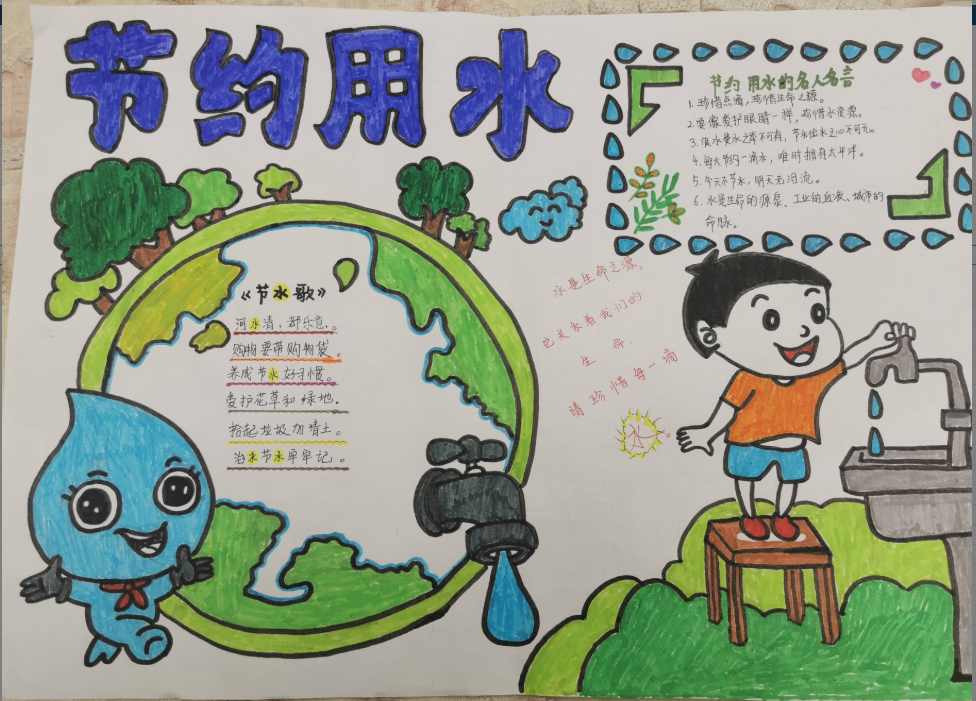 节约用水
节约用水的名人名言
1. 珍惜点滴，珍惜生命之源。
2. 要像爱护眼睛一样，珍惜水资源。
3. 浪水费水之举不可有，节水惜水之心不可无。
4. 每天节约一滴水，难时拥有太平洋。
5. 今天不节水，明天无泪流。
6. 水是生命的源泉、工业的血液、城市的
命脉。
《节水歌》
河水清，都乐意。
购物要带购物袋。
养成节水好习惯。
爱护花草和绿地。
拾起垃圾加清土。
治水节水牢牢记。
水是生命之源，
它关系着我们的
生命，
请珍惜每一滴
水。